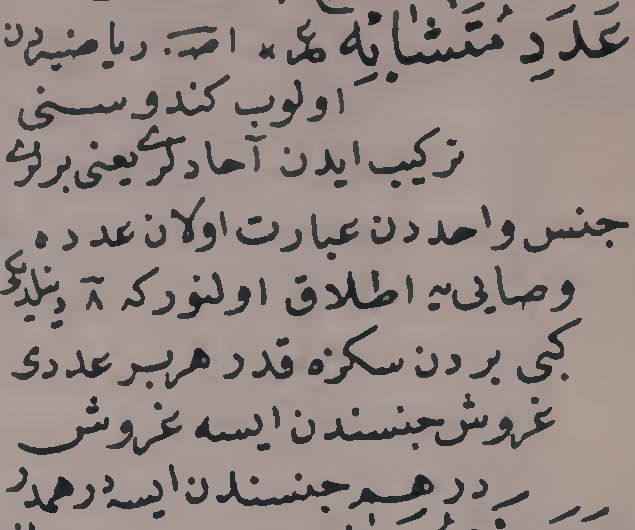 عَدَدِ مُتَشَابِه عر * اصـ. رياضيه‌دن
اولوب كندوسنى
تركيب ايدن آحادلرى يعنى برلرى
جنس واحددن عبارت اولان عدده
وصايى‌يه اطلاق اولنوركه ٨ دينلديكى
كبى بردن سكزه قدر هر بر عددى
غروش جنسندن ايسه غروش
درهم جنسندن ايسه درهمدر